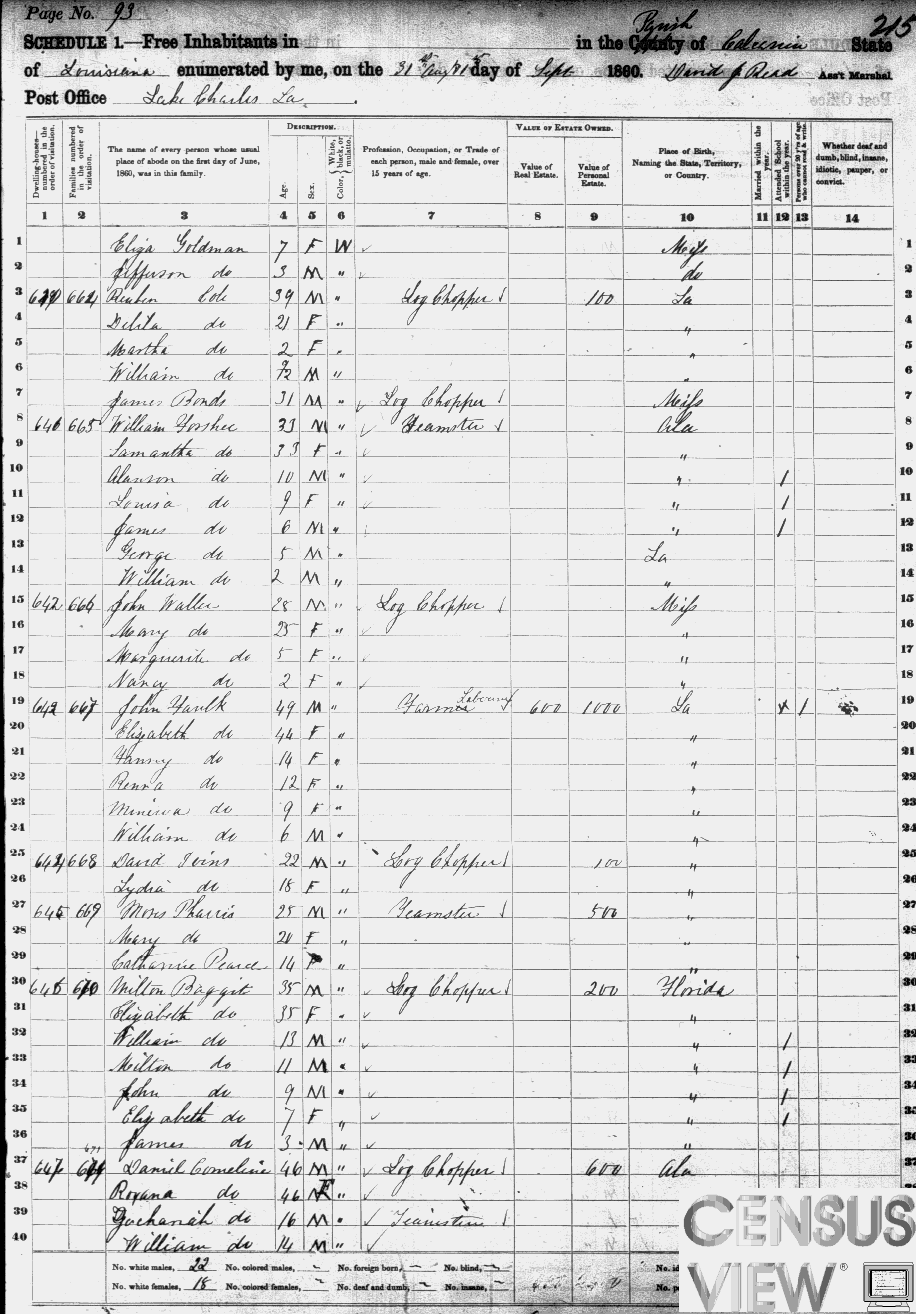 Page No. 93
SCHEDULE 1.—Free Inhabitants in in the County of Parish Calcasieu State 215
of Louisiana enumerated by me, on the 31st Aug & 1st day of Sept 1860. David J Read Ass't Marshal
Post Office Lake Charles La.
DESCRIPTION. VALUE OF ESTATE OWNED.
Dwelling-houses—numbered in the order of visitation. Families numbered in the order of visitation. The name of every person whose usual place of abode on the first day of June, 1860, was in this family. Age. Sex. Color, {White, black, or mulatto. Profession, Occupation, or Trade of each person, male and female, over 15 years of age. Value of Real Estate. Value of Personal Estate. Place of Birth, Naming the State, Territory, or Country. Married within the year. Attended School within the year. Persons over 20 y'rs of age who cannot read & write. Whether deaf and dumb, blind, insane, idiotic, pauper, or convict.
1 2 3 4 5 6 7 8 9 10 11 12 13 14
1 Eliza Goldman 7 F W Miss 1
2 Jefferson do 3 M " do 2
3 664 Reuben Cole 39 M " Log Chopper 100 La 3
4 Delila do 21 F " " 4
5 Martha do 2 F " " 5
6 William do M " " 6
7 James Bonds 31 M " Log Chopper Miss 7
8 665 William Forshee 33 M " Teamster Ala 8
9 Samantha do 33 F " " 9
10 Alanson do 10 M " " / 10
11 Louisa do 9 F " " / 11
12 James do 6 M " " / 12
13 George do 5 M " La 13
14 William do 2 M " " 14
15 642 666 John Waller 28 M " Log Chopper Miss 15
16 Mary do 25 F " " 16
17 Marguerite do 5 F " " 17
18 Nancy do 2 F " " 18
19 667 John Faulk 49 M " Farm Labourer 600 1000 La / 19
20 Elizabeth do 44 F " " 20
21 Fanny do 14 F " " 21
22 Renna do 12 F " " 22
23 Minirva do 9 F " " 23
24 William do 6 M " " 24
25 668 David Ivins 22 M " Log Chopper 100 " 25
26 Lydia do 18 F " " 26
27 645 669 Moses Pharris 25 M " Teamster 500 " 27
28 Mary do 20 F " " 28
29 Catharine Pearce 14 F " " 29
30 646 670 Milton Baggit 35 M " Log Chopper 200 Florida 30
31 Elizabeth do 35 F " " 31
32 William do 13 M " " / 32
33 Milton do 11 M " " / 33
34 John do 9 M " " / 34
35 Elizabeth do 7 F " " / 35
36 James do 3 M " " 36
37 647 671 Daniel Comeline 46 M " Log Chopper 600 Ala 37
38 Roxana do 46 F " 38
39 Zachariah do 16 M " Teamster
40 William do 14 M "
No. white males, 22 No. colored males, No. foreign born, No. blind, No. id
No. white females, 18 No. colored females, No. deaf and dumb, No. insane, No. p
CENSUS
VIEW®